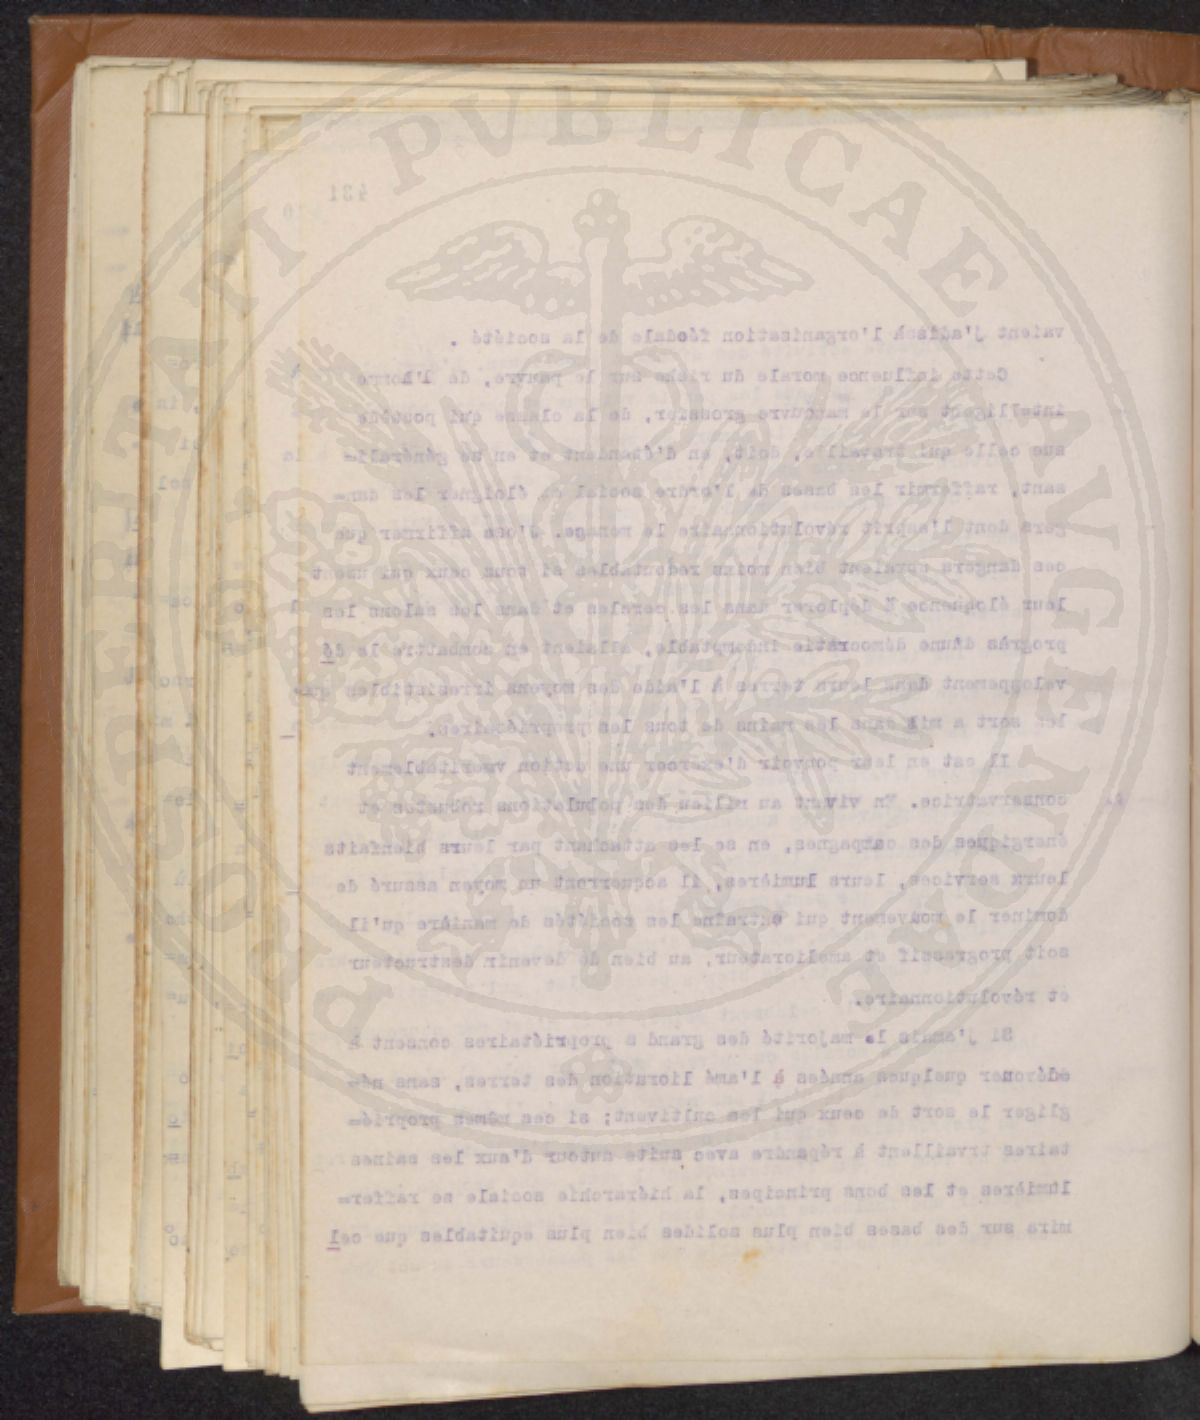 431
vaient j'adis à l'organisation féodale de la société .
Cette influence morale du riche sur le pauvre, de l'homme
intelligent sur le manouvre grossier, de la classe qui possède
sue celle qui travaille, doit, en d'étendant et en se générali-
sant, raffermir les bases de l'ordre social en éloigner les dan-
gers dont l'esprit révolutionnaire le menage. J'ose affirmer que
ces dangers seraient bien moins redoutables si tous ceux qui usent
leur éloquence à déplorer dans les cercles et dans les salons les
progrès d'une démocratie indomptable, allaient en combattre le dé
veloppement dans leurs terres à l'aide des moyens irresistibles que
les sort a mis dans les mains de tous les propriétaires.
Il est en leur pouvoir d'exercer une action véritablement
conservatrice. En vivant au milieu des populations robustes et
énergiques des campagnes, en se les attachant par leurs bienfaits
leurs services, leurs lumières, il acquerront un moyen assuré de
dominer le mouvement qui entraîne les sociétés de manière qu'il
soit progressif et améliorateur, au bien de devenir destructeur
et révolutionnaire.
Si j'amais la majorité des grand s propriétaires consent à
consacrer quelques années à l'amé lioration des terres, sans né-
gliger le sort de ceux qui les cultivent; si ces mêmes proprié=
taires trvaillent à répandre avec suite autour d'aux les saines
lumières et les bons principes, la hiérarchie sociale se raffer=
mira sur des bases bien plus solides bien plus equitables que cel
PROSPERITATI PVBLICAE AVGENDAE